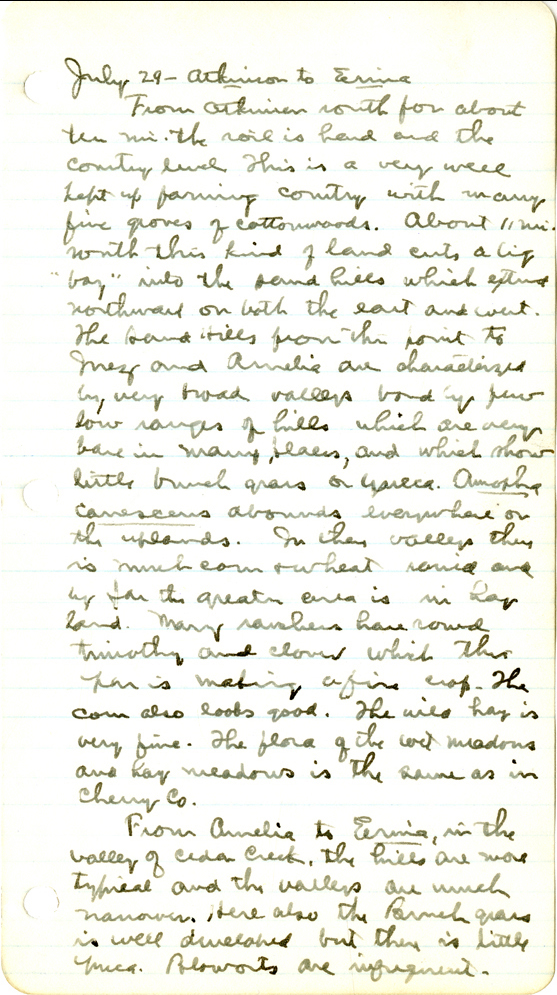 July 29 - Atkinson to Ermina
From Atkinson south for about
ten mi. the soil is hard and the
country level. This is a very well
kept up farming country with many
fine groves of cottonwoods. About 11 mi.
south this kind of land cuts a big
"bay" into the sand hills which extend
northward on both the east and west.
The Sand Hills from this point to
Inez and Amelia are characterized
by very broad valleys bond by few
low ranges of hills which are very
bare in many places, and which show
little bunch grass or yucca. Amorpha
canescens abounds everywhere on
the uplands. In these valleys there
is much corn & wheat raised and
by far the greater area is in hay
land. Many ranchers have sowed
timothy and clover which this
year is making a fine crop. The
corn also looks good. The wild hay is
very fine. The flora of the wet meadows
and hay meadows is the same as in
Cherry Co.
From Amelia to Ermina, in the
valley of Cedar Creek, the hills are more
typical and the valleys are much
narrower. Here also the Bunch grass
is well developed but there is little
yucca. Blowouts are infrequent.